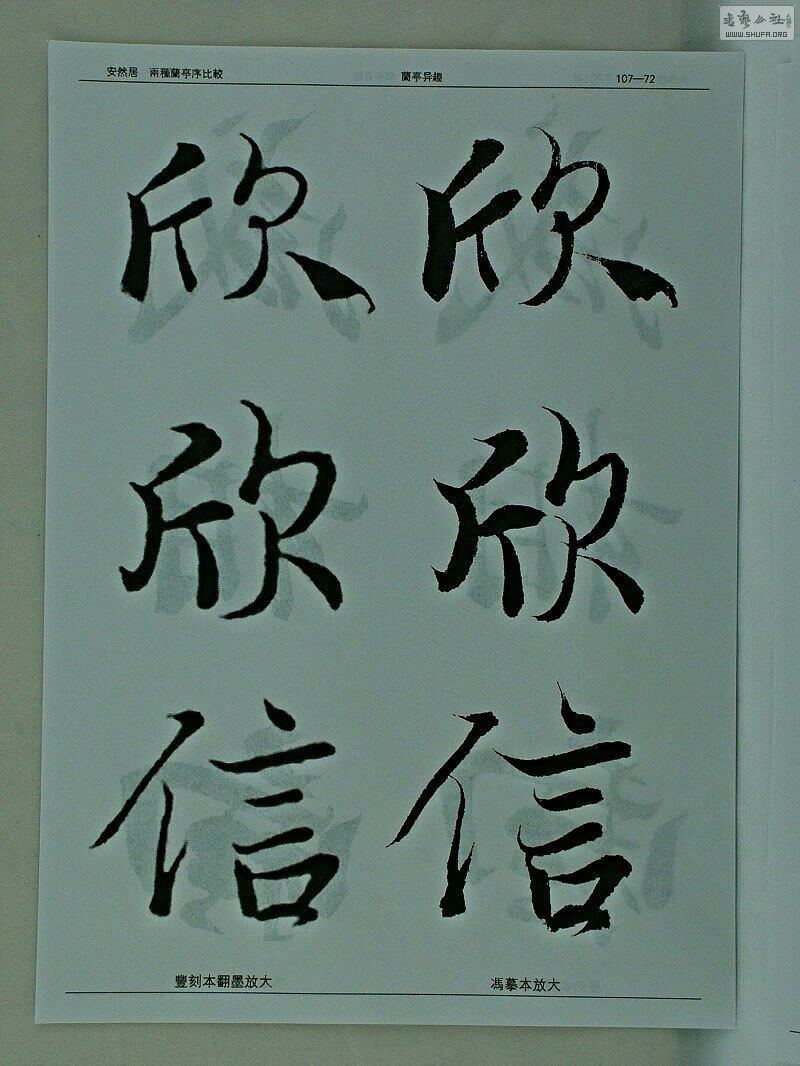 書藝公社
WWW.SHUFA.ORG
安然居 兩種蘭亭序比較 蘭亭异趣 107—72
欣 欣
欣 欣
信 信
豐刻本翻墨放大 馮摹本放大